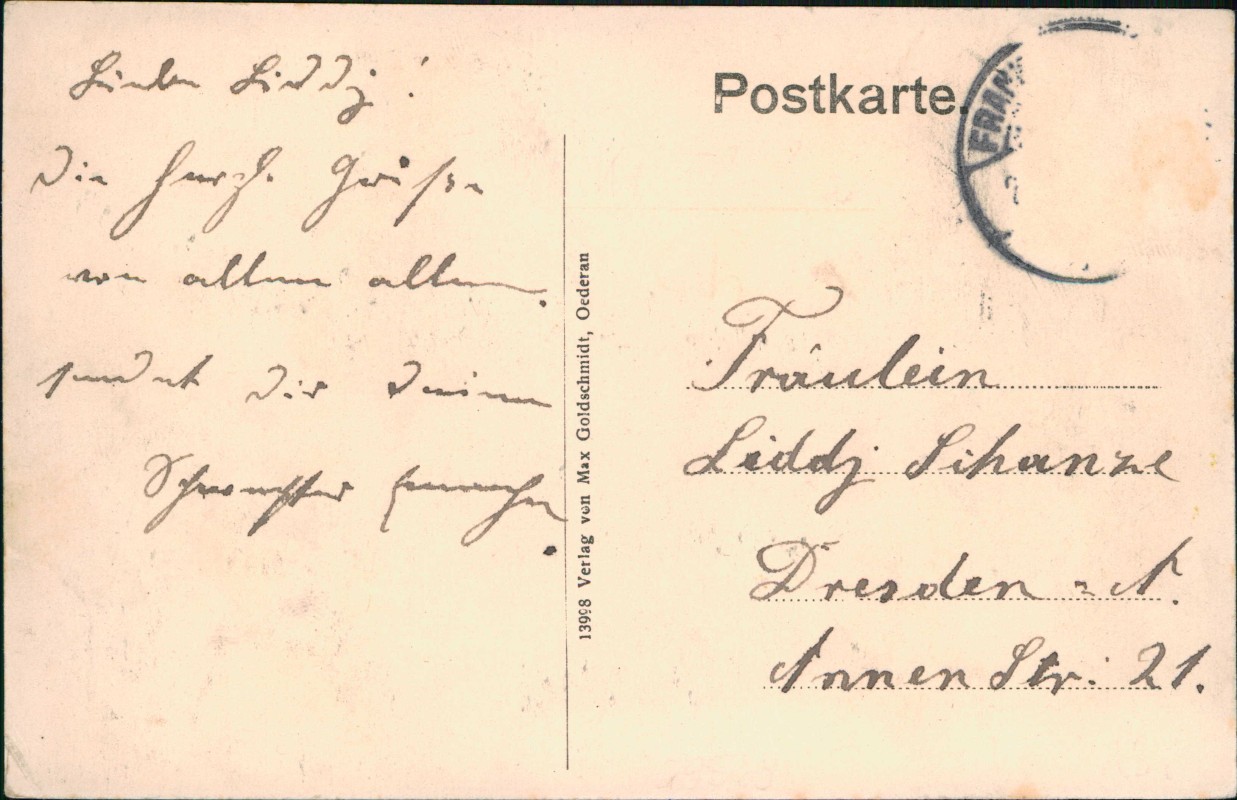 Lieben Liddy!
Die herzl. Grüße
von allen allen.
sendet Dir Deine
Schwester
13998 Verlag von Max Goldschmidt, Oederan
Postkarte.
FRAN
Fräulein
Liddy Schanze
Dresden = A.
Annen Str. 21.